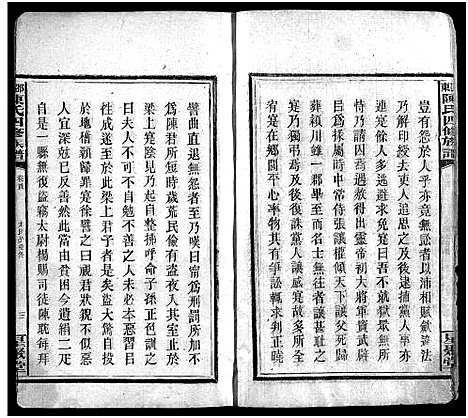 東□陳氏四修族譜
豈有怨於人乎亦竟無訟者以沛相賦斂違法
乃解印綬去吏人追思之及後逮捕黨人事亦
連寔餘人多逃避求免寔曰吾不就獄眾無所
恃乃請囚焉遇赦得出靈帝初大將軍竇武辟
呂為掾屬時中常侍張讓權傾天下讓父死歸
葬潁川雖一郡畢至而名士無往者讓甚恥之
寔乃獨弔焉後復誅黨人讓感寔故多所全宥
寔在鄉閭平心率物其有爭訟輒求判正曉
星聚堂
譬曲直退無怨者至乃嘆曰甯為刑罰所加不
為陳君所短時歲荒民儉有盜夜入其室止於
梁上寔陰見乃起自整拂呼命子孫正色訓之
曰夫人不可不自勉不善之人未必本惡習以
性成遂至於此梁上君子者是矣盜大驚自投
於地稽顙歸罪寔徐譬之曰視君狀貌不似惡
人宜深尅己反善然此當由貧困今遺絹二疋
自是一縣無復盜竊太尉楊賜司徒陳耽每拜
陳氏四修族譜
卷首
三
星聚堂